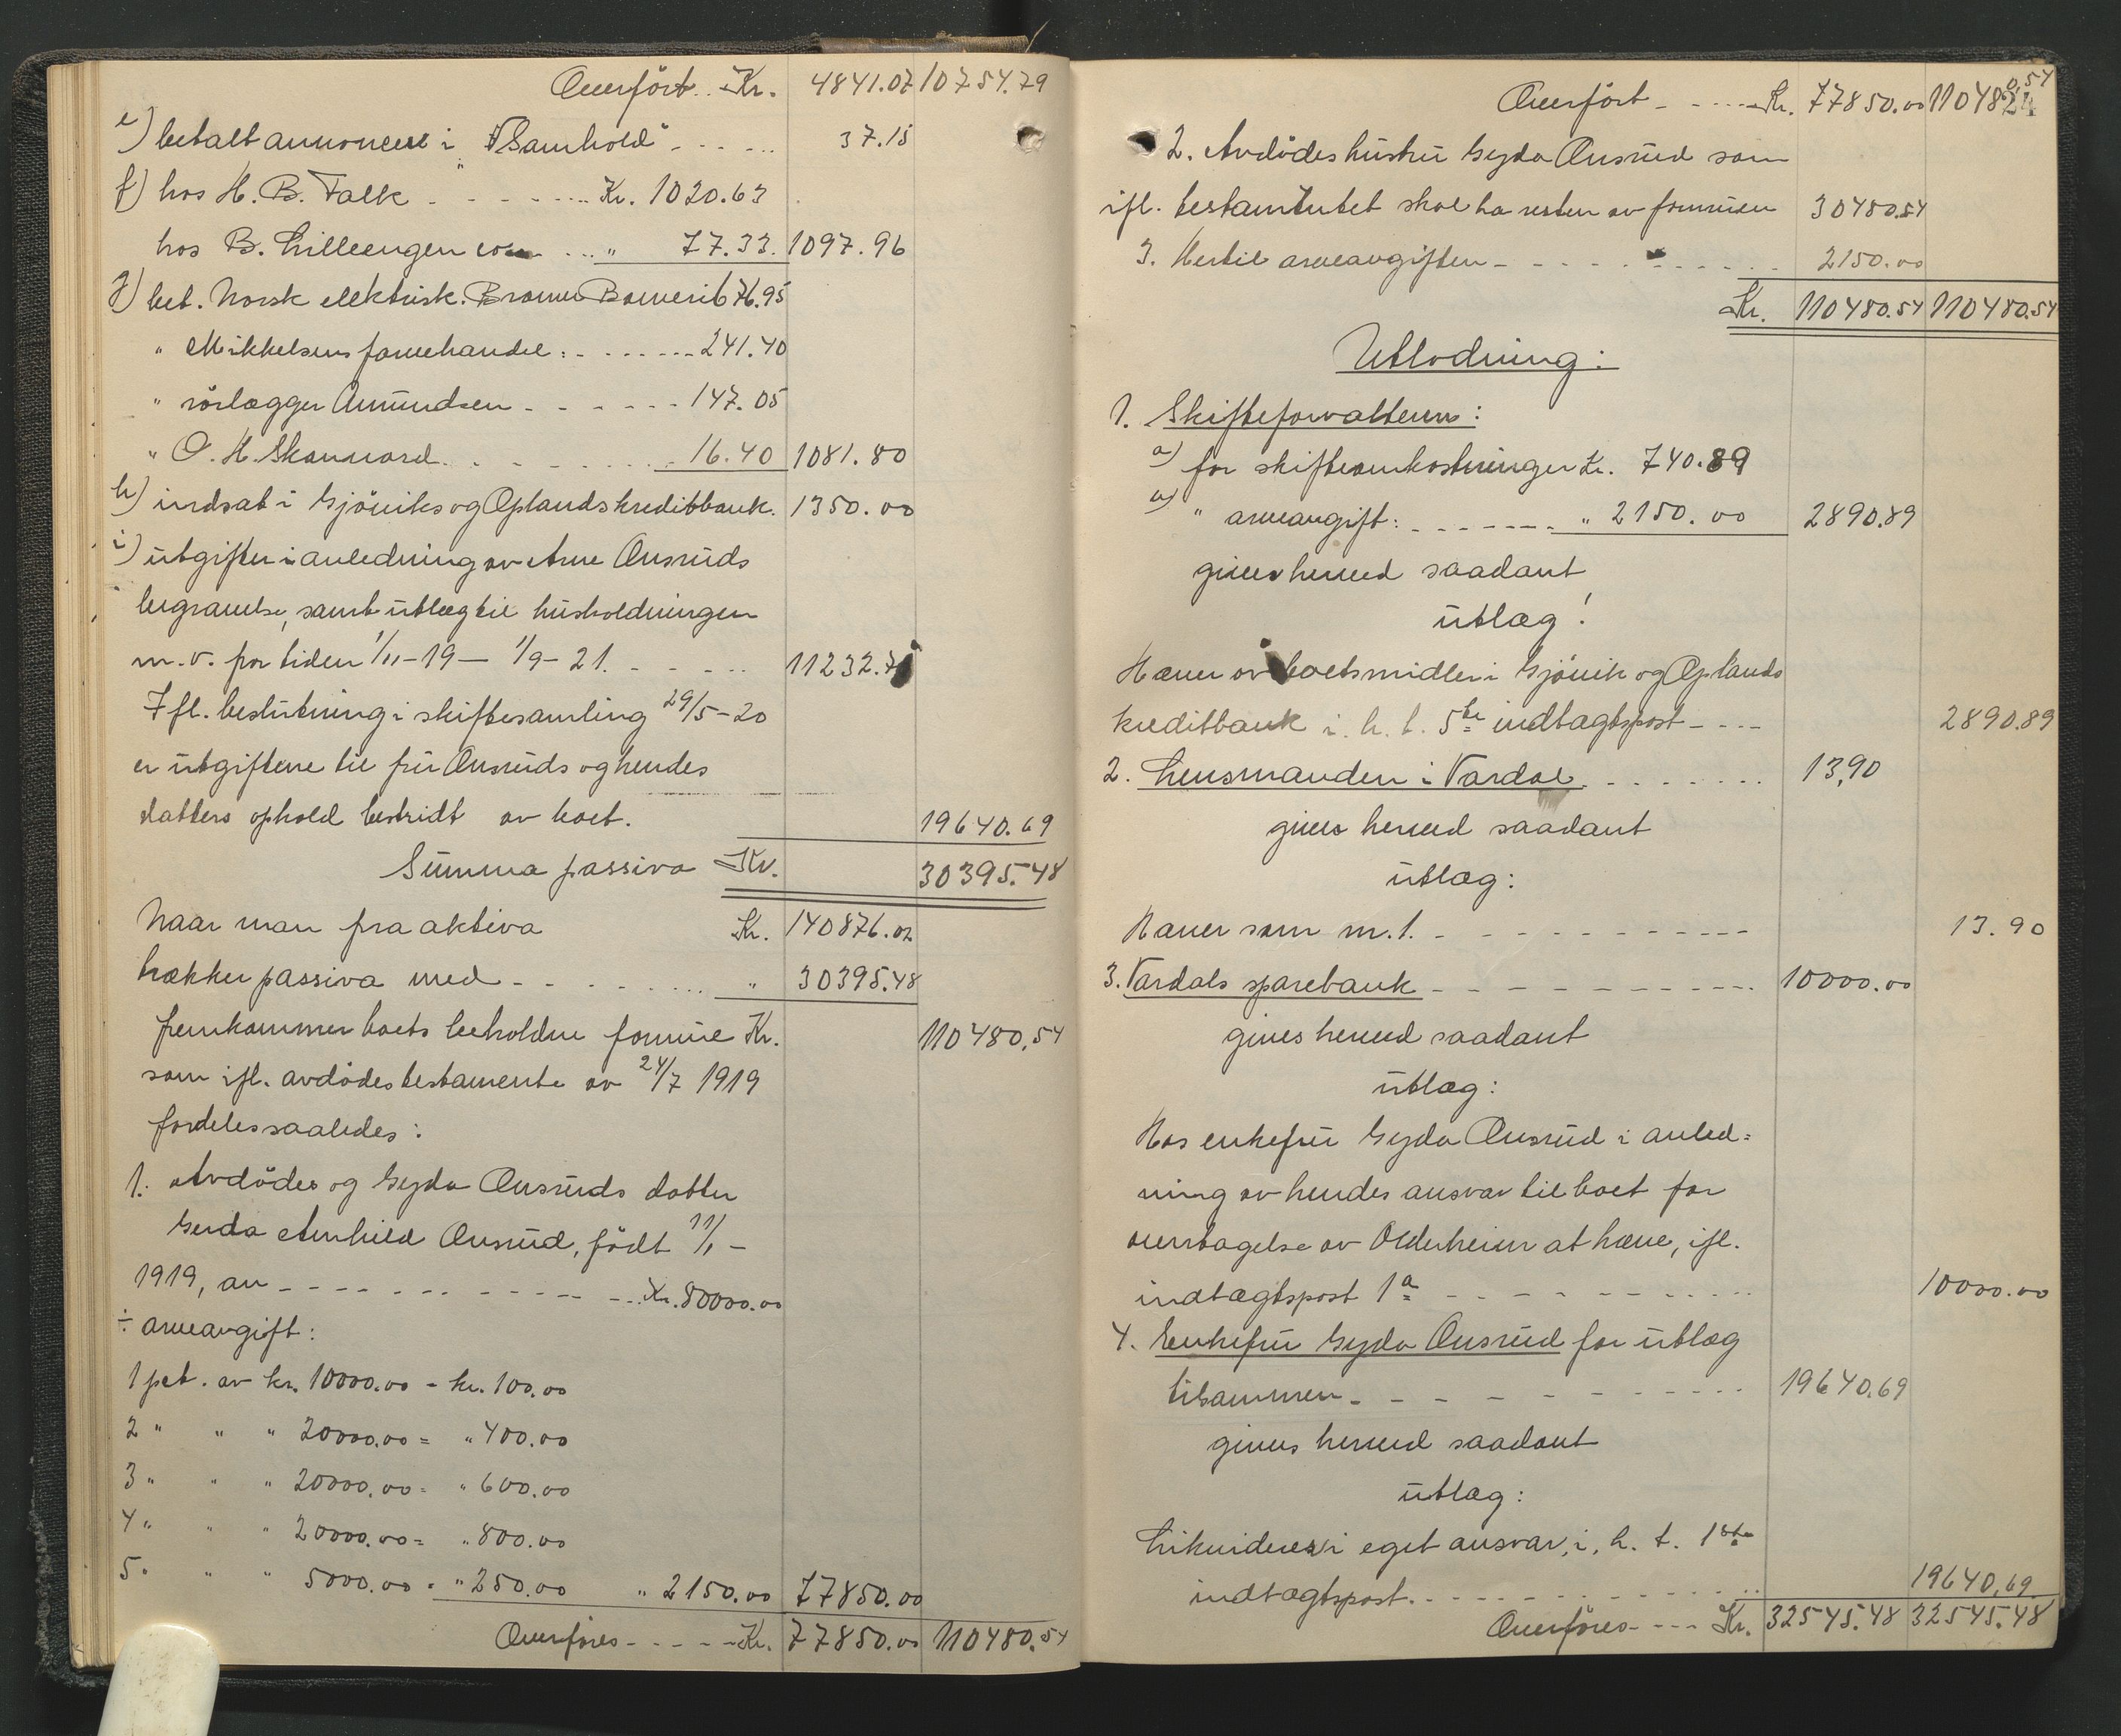 Overført.. Kr. 4841.07 10754.79
e) betalt annoncer i "Samhold" - - - ... 37.15
f) hos H. B. Falk - - - - .... Kr. 1020.63
hos B. Lilleengen ... " 77.33. 1097.96
g) bet. Norsk elektrisk. Brown Boweri 676.95
" Mikkelsens farvehandel: - ...... 241.40
" rørlægger Amundsen - - - - - - 147.05
" O. H. Skannord. - - - - - - - 16.40 1081.80
h) indsat i Gjøviks og Oplands kreditbank. 1350.00
i) utgifter i anledning av Arne Onsruds
begravelse, samt utlæg til husholdningen
m.v. for tiden 1/11-19 — 1/9-21. - - - ... 11232.71
Ifl. beslutning i skiftesamling 29/5-20
er utgiftene til fru Onsruds og hendes
datters ophold bestridt av boet. 19640.69
Summa passiva Kr. 30395.48
Naar man fra aktiva Kr. 140876.02
trækker passiva med - - - - - - .... " 30395.48
fremkommer boets beholdne formue Kr. 110480.54
som ifl. avdødes testamente av 24/7 1919
fordeles saaledes:
1. Avdødes og Gyda Onsruds datter
Gerda Arnhild Onsrud, født 11/1 -
1919, arv - - - - - - - - - - - - ... Kr. 80000.00
÷ arveavgift:
1 pct. av kr. 10000.00 = kr. 100.00
2 " " " 20000.00 = " 400.00
3 " " " 20000.00 = " 600.00
4 " " " 20000.00 = " 800.00
5 " " " 5000.00 = " 250.00 " 2150.00 77850.00
Overføres - - - - - Kr. 77850.00 110480.54
24
Overført - - ..... Kr. 77850.00 110480.54
2. Avdødes hustru Gyda Onsrud som
ifl. testamentet skal ha resten av formuen 30480.54
3. Hertil arveavgiften - - - - - - - .... 2150.00
Kr. 110480.54 110480.54
Utlodning:
1. Skifteforvalteren:
a) for skifteomkostninger Kr. 740.89
" arveavgift: - - - - - - - " 2150.00 2890.89
gives herved saadant
utlæg!
Hæver av boets midler i Gjøvik og Oplands
kreditbank i. h. t. 5te indtægtspost - - - - 2890.89
2. Lensmanden i Vardal. - - - - - - - 13,90
gives herved saadant
utlæg:
Hæver som m. 1. - - - - - - - - - - - - - 13.90
3. Vardals sparebank - - - - - - - - - - - 10000.00
gives herved saadant
utlæg:
Hos enkefru Gyda Onsrud i anled=
ning av hendes ansvar til boet for
overtagelse av Olderheim at hæve, ifl.
indtægtspost 1a - - - - - - - - - - ..... 10000.00
4. Enkefru Gyda Onsrud for utlæg
tilsammen - - - - - - - - - - ..... 19640.69
gives herved saadant
utlæg:
Likvideres i eget ansvar, i. h. t. 1ste
indtægtspost. - - - - - - - - - - - .. 19640,69
Overføres - - - - Kr. 32545.48 32545.48